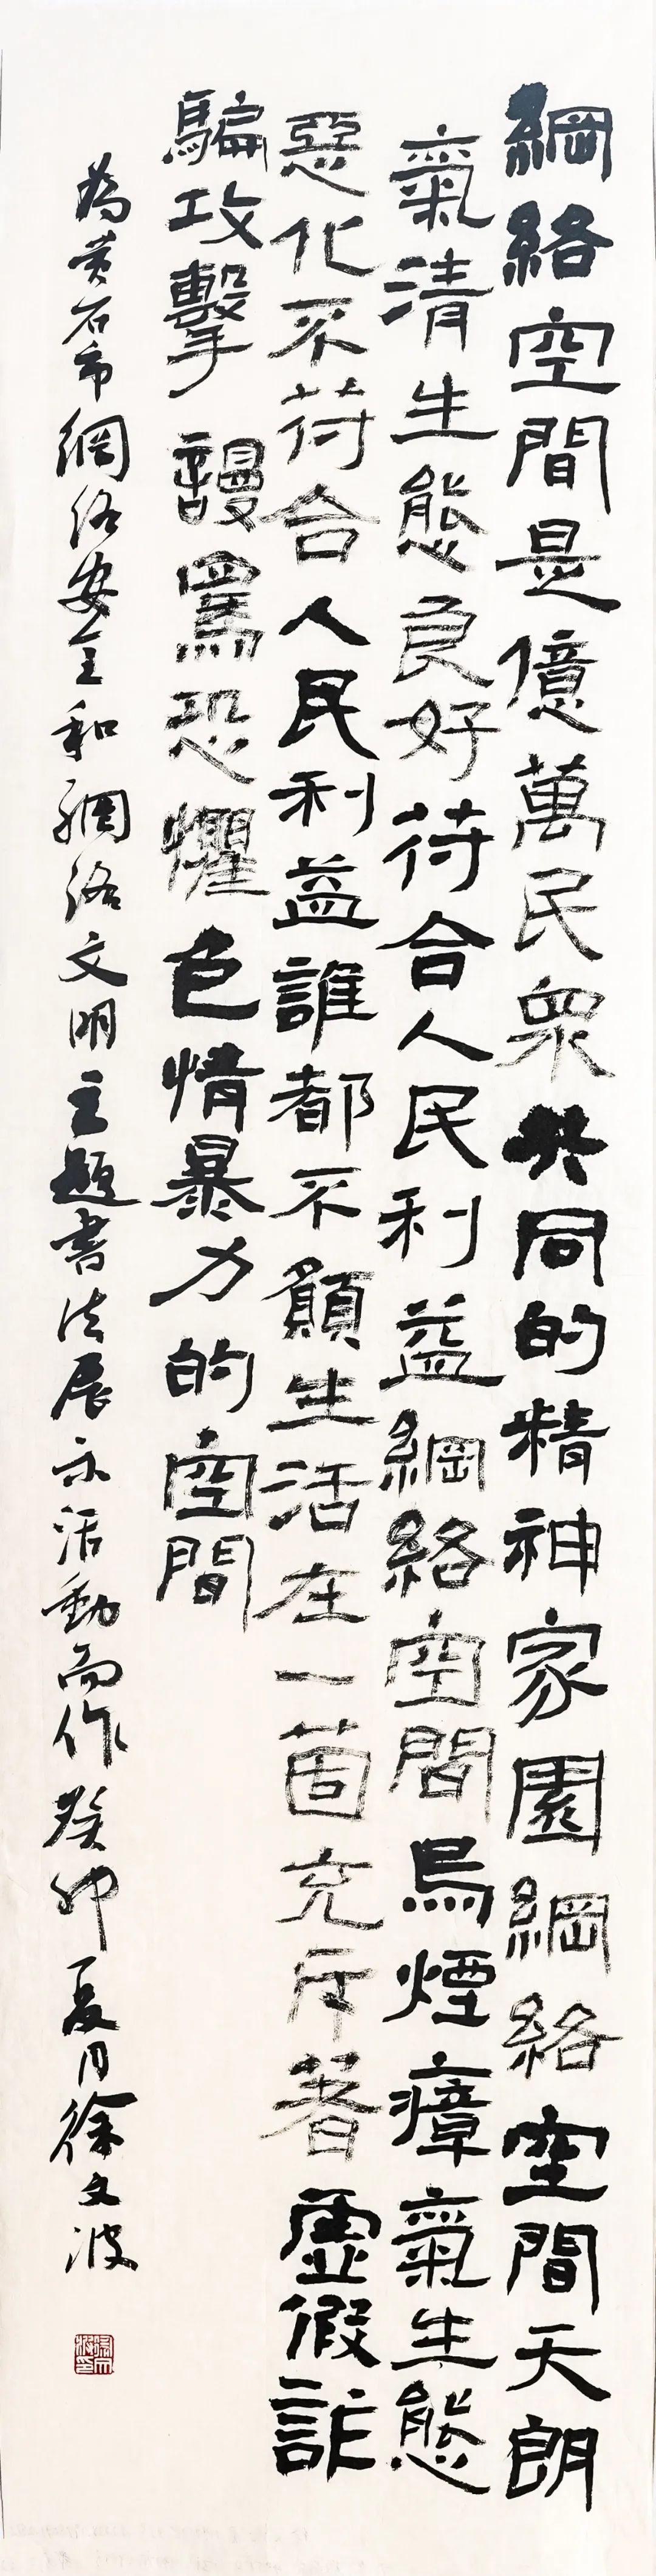 網絡空間是億萬民衆共同的精神家園網絡空間天朗
氣清生態良好符合人民利益網絡空間烏煙瘴氣生態
惡化不符合人民利益誰都不願生活在一箇充斥著虛假詐
騙攻擊謾罵恐懼色情暴力的空間
為黄石市網络安全和網络文明主题書法展示活動而作癸卯夏月徐文波